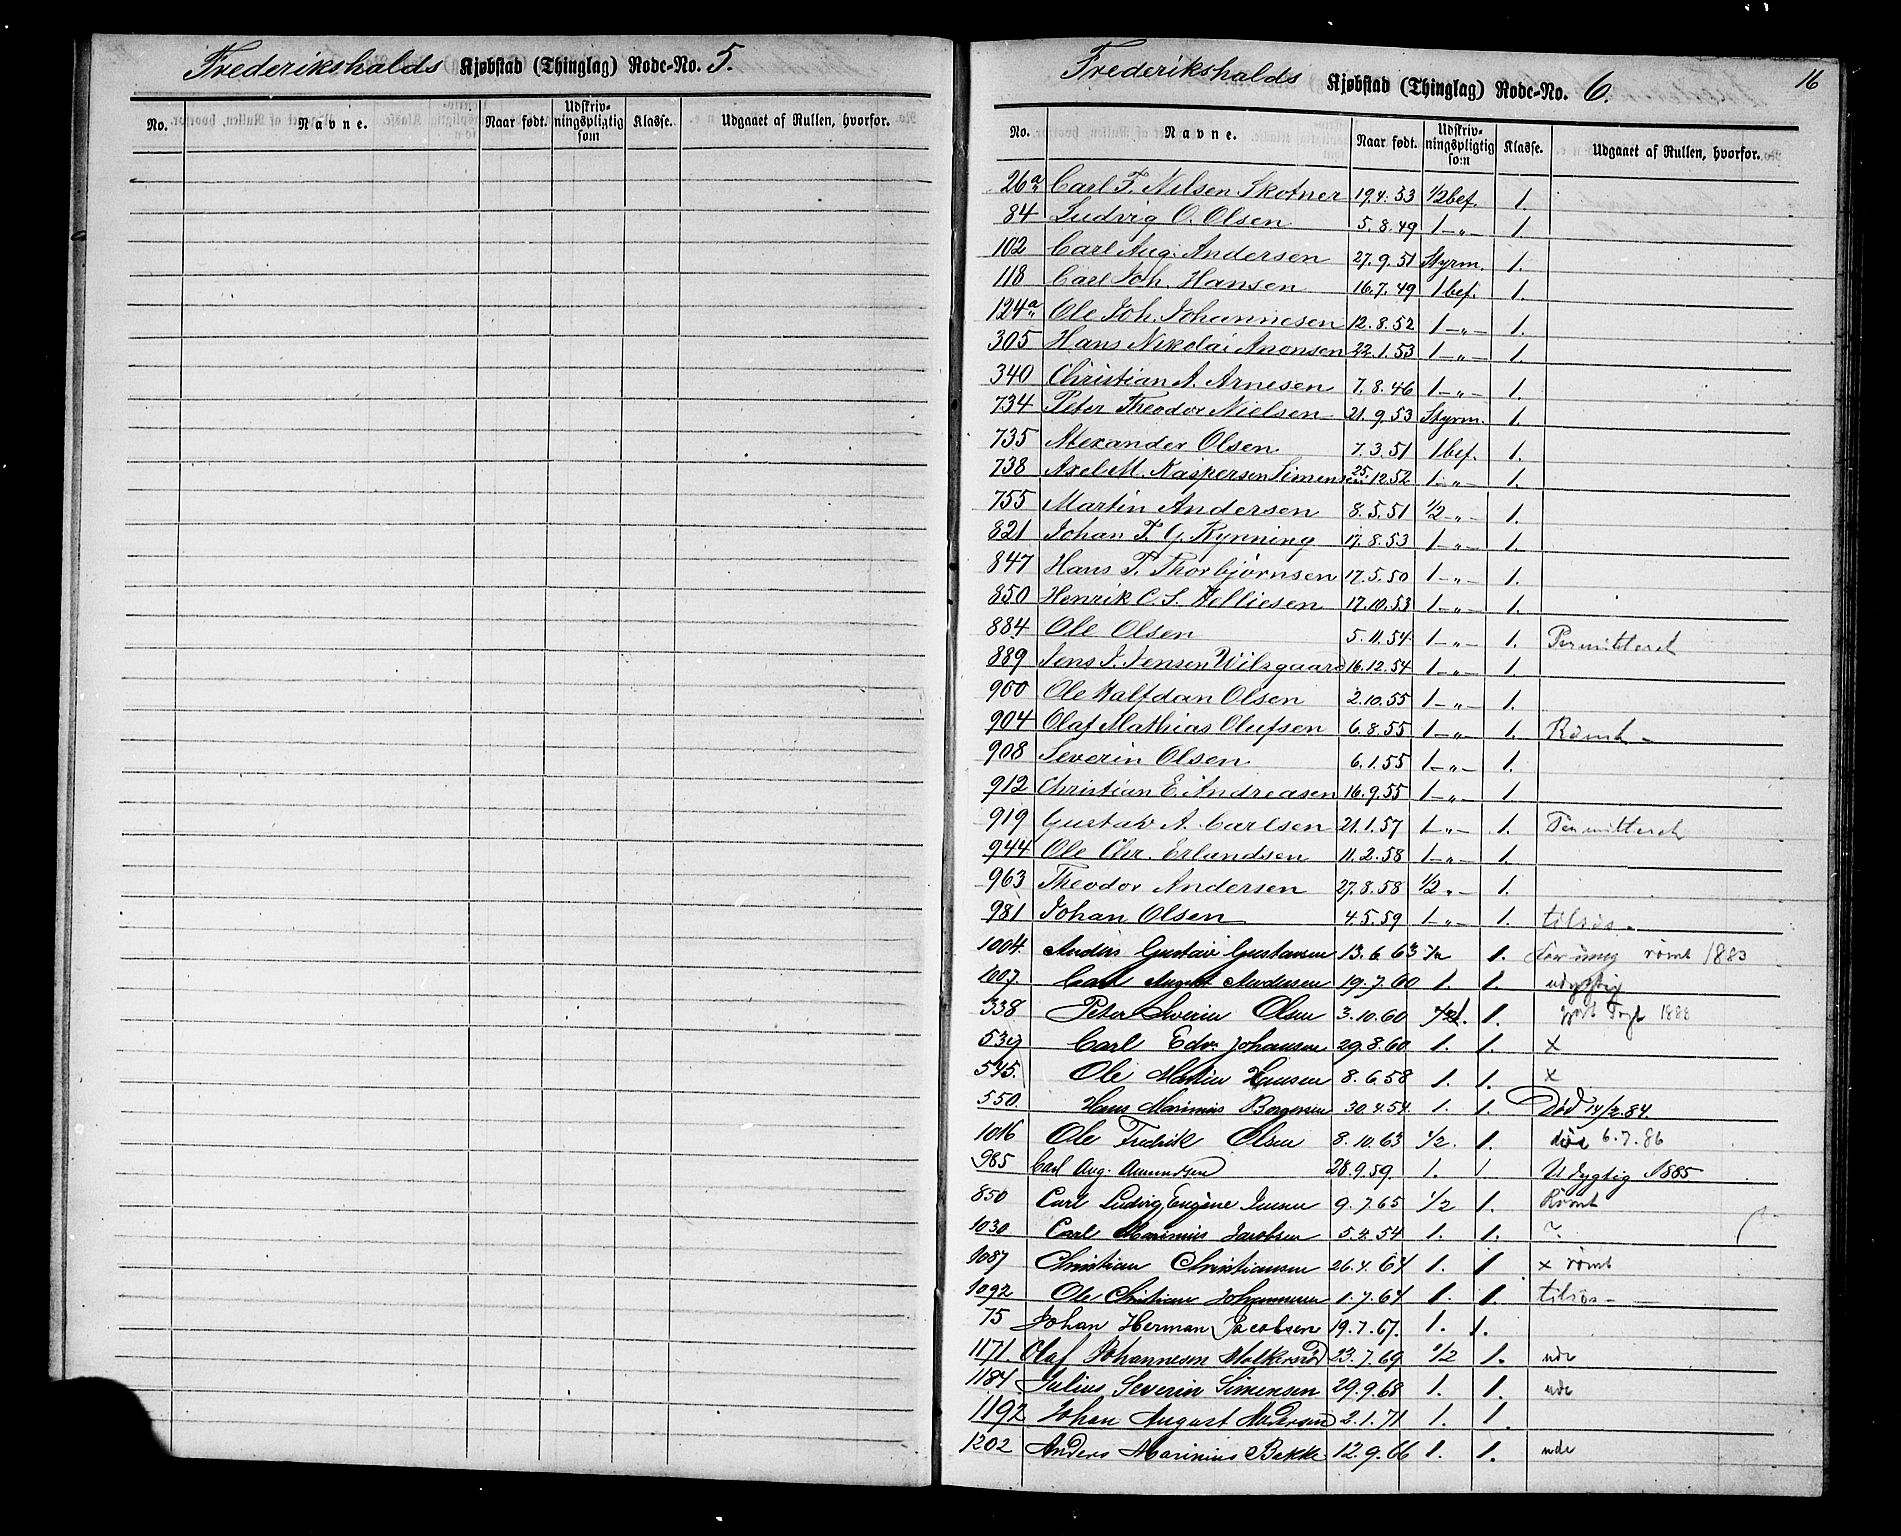 Frederikshalds Kjøbstad (Thinglag) Rode-No. 5.
No. Navne. Naar født. Udskriv-ningspligtig som Klasse. Udgaaet af Rullen, hvorfor.
16
Frederikshalds Kjøbstad (Thinglag) Rode-No. 6.
No. Navne. Naar født. Udskriv-ningspligtig som Klasse. Udgaaet af Rullen, hvorfor.
26a Carl F. Nilsen Skotner 19.4.53 1/2 bef. 1.
84 Ludvig O. Olsen 5.8.49 1 -„- 1.
102 Carl Aug. Andersen 27.9.51 Styrm. 1.
118 Carl Joh. Hansen 16.7.49 1 bef. 1.
124a Ole Joh. Johannesen 12.8.52 1 -„- 1.
305 Hans Nikolai Anonsen 22.1.53 1 -„- 1.
340 Christian A. Arnesen 7.8.46 1 -„- 1.
734 Peter Theodor Nielsen 21.9.53 Styrm. 1.
735 Alexander Olsen 7.3.51 1 bef. 1.
738 Axel M. Kaspersen Simensen 25.12.52 1 -„- 1.
755 Martin Andersen 8.5.51 1/2 -„- 1.
821 Johan F. G. Rynning 17.8.53 1 -„- 1.
847 Hans P. Thorbjørnsen 17.5.50 1 -„- 1.
850 Henrik C. S. Helliesen 17.10.53 1 -„- 1.
884 Ole Olsen 5.11.54 1 -„- 1. Permitteret
889 Jens J. Jensen Wilsgaard 16.12.54 1 -„- 1.
900 Ole Halfdan Olsen 2.10.55 1 -„- 1.
904 Olaf Mathias Olufsen 6.8.55 1 -„- 1. Rømt -
908 Severin Olsen 6.1.55 1 -„- 1.
912 Christian E. Andreasen 16.9.55 1 -„- 1.
919 Gustav A. Carlsen 21.1.57 1 -„- 1. Permitteret
944 Ole Chr. Erlandsen 11.2.58 1 -„- 1.
963 Theodor Andersen 27.8.58 1/2 „- 1.
981 Johan Olsen 4.5.59 1 -„- 1. tilsøs.
1004. Anders Gustav Gustavsen 13.6.63 1/2 1. rømt 1883
1007. Carl August Andersen 19.7.60 1. 1. udygtig
338 Peter Severin Olsen 3.10.60 1. 1888
539 Carl Edv. Johansen 29.8.60 1. 1. x
545. Ole Martin Hansen 8.6.58 1. 1. x
550. Hans Marinius Borgersen 30.4.54 1. 1. Død 14/2.84.
1016 Ole Fredrik Olsen 8.10.63 1/2. 1. død 6.7.86
985 Carl Aug. Amundsen 28.9.59. 1. 1. Udygtig 1885
850 Carl Ludvig Eugene Jensen 9.7.65 1/2 1. Rømt
1030 Carl Marinius Jacobsen 5.2.54 1. 1. ?
1087 Christian Christiansen 26.4.64 1. 1 x rømt
1092 Ole Christian Johannesen 1.7.64 1. 1. tilsøs -
75 Johan Herman Jacobsen 19.7.67. 1. 1.
1171. Olaf Johannesen 23.7.69 1/2 1. ude
1184 Julius Severin Simensen 29.9.68 1. 1. ude
1192 Johan August Andersen 2.1.71 1. 1
1202 Anders Marinius Bakke 12.9.66 1. 1. ude